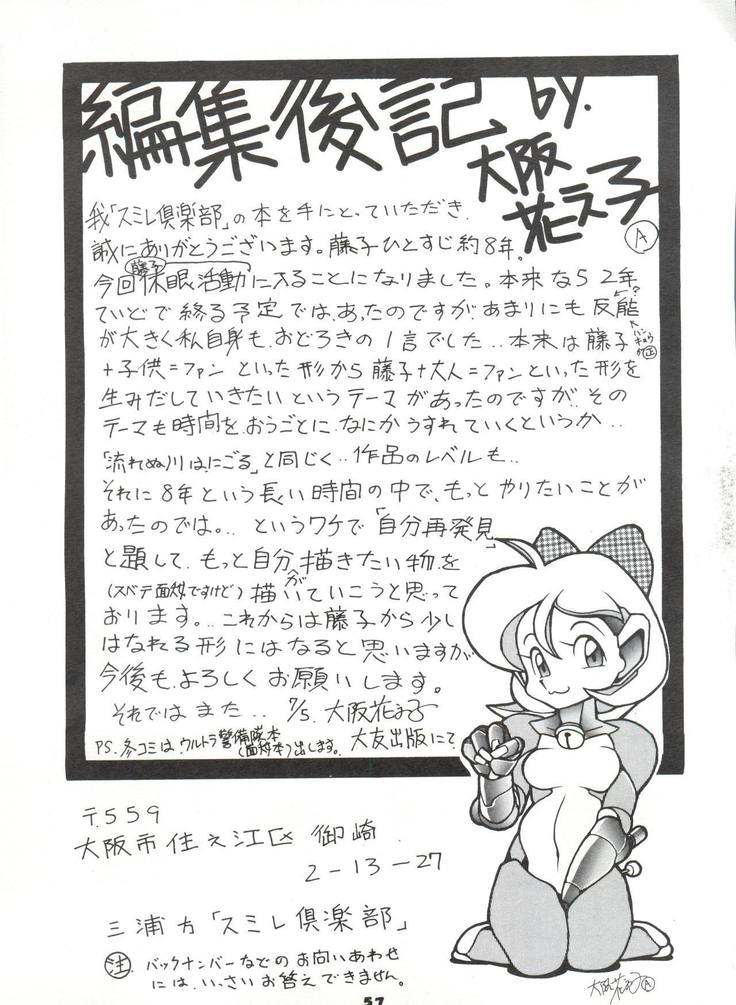 編集後記 by.
大阪
花え子
A
我「スミレ倶楽部」の本を手にとっていただき
誠にありがとうございます。藤子ひとすじ約8年。
藤子
今回 休眠活動に入ることになりました。本来なら2年
←?
ていどで終る予定では、あったのですがあまりにも反能
が大きく私自身も、おどろきの1言でした.. 本来は藤子
+子供=ファン といった形から 藤子+大人=ファンといった形を
生みだしていきたい というテーマがあったのですが、その
テーマも時間を、おうごとに、なにか うすれていくというか..
「流れぬ川はにごる」と同じく.. 作品のレベルも..
それに8年という長い時間の中で、もっと やりたいことが
あったのでは。.. というワケで「自分再発見」
と題して、もっと自分が描きたい物を
(スベテ面妖ですけど) 描いていこうと思って
おります。.. これからは藤子から少し
はなれる形にはなると思いますが
今後も、よろしく お願いします。
それでは また.. 7/5. 大阪花え子
PS. 冬コミは、ウルトラ警備隊本
(面妖本)出します。
大友出版にて
〒559
大阪市住之江区 御崎
2-13-27
三浦方「スミレ倶楽部」
注 バックナンバーなどの お問いあわせ
には、いっさい お答えできません。
大阪花え子 A
57